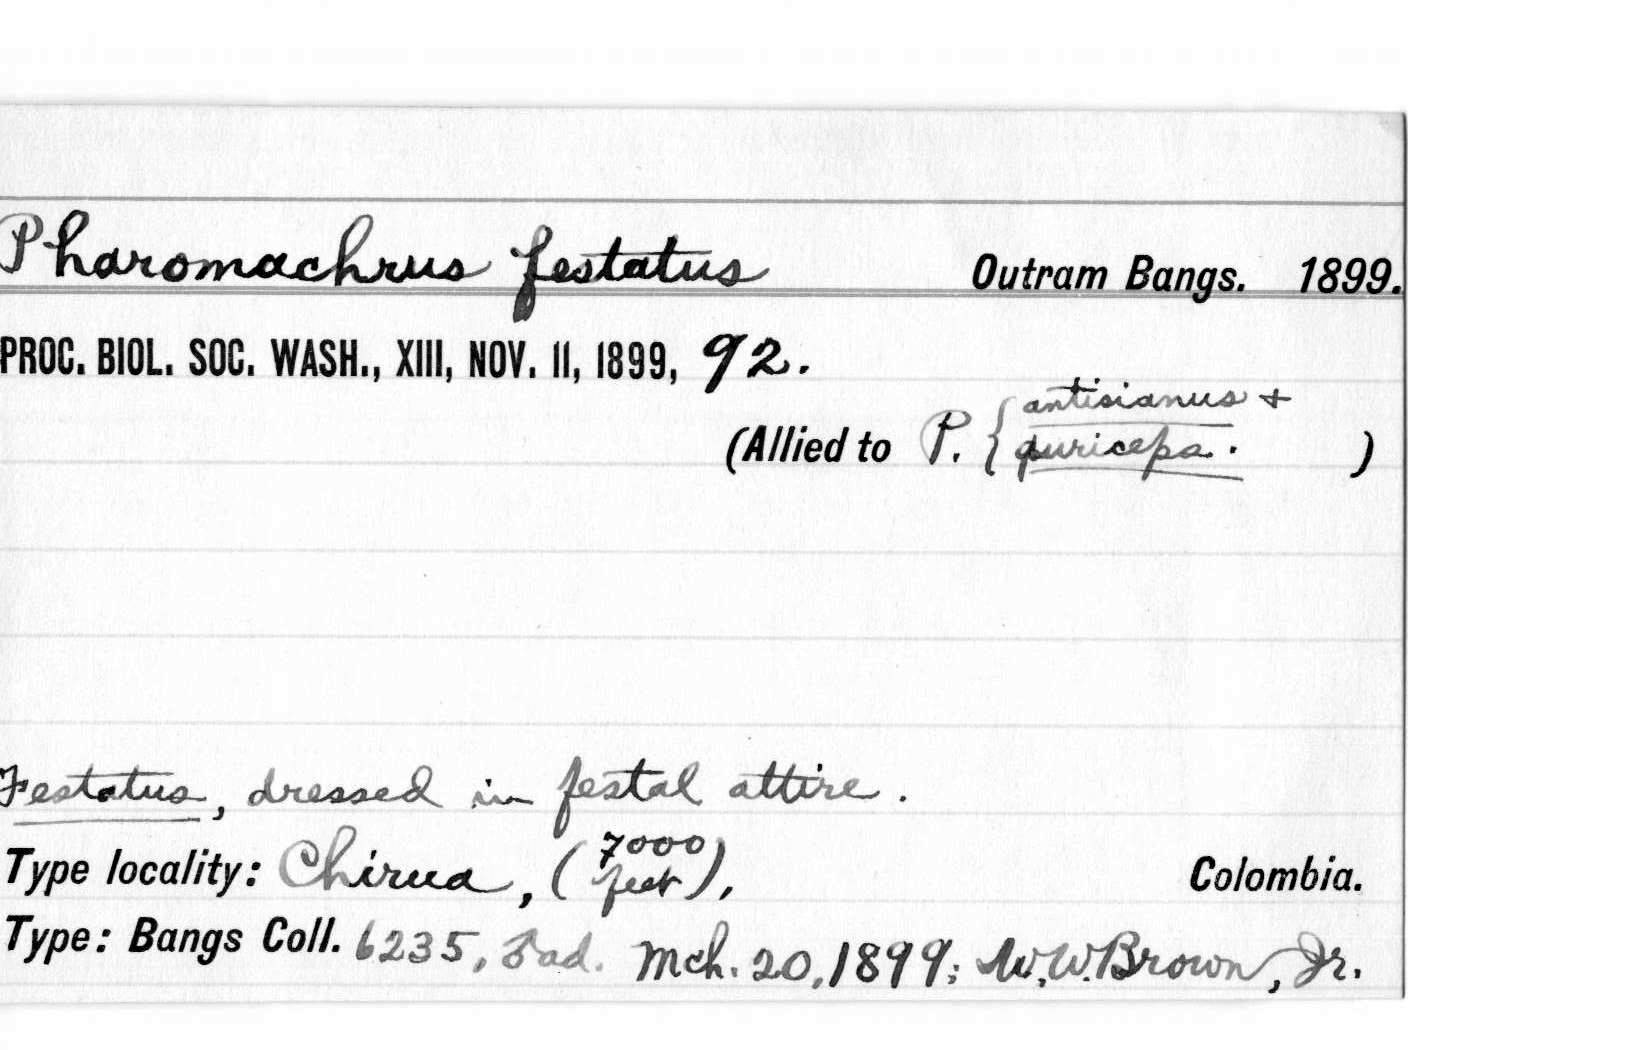 Pharomachrus festatus Outram Bangs. 1899.
PROC. BIOL. SOC. WASH., XIII, NOV. 11, 1899, 92.
(Allied to P. { antisianus +
auriceps. )
Festatus, dressed in festal attire.
Type locality: Chirua, (7000 feet), Colombia.
Type: Bangs Coll. 6235, ad. Mch. 20, 1899; W. W. Brown, Jr.